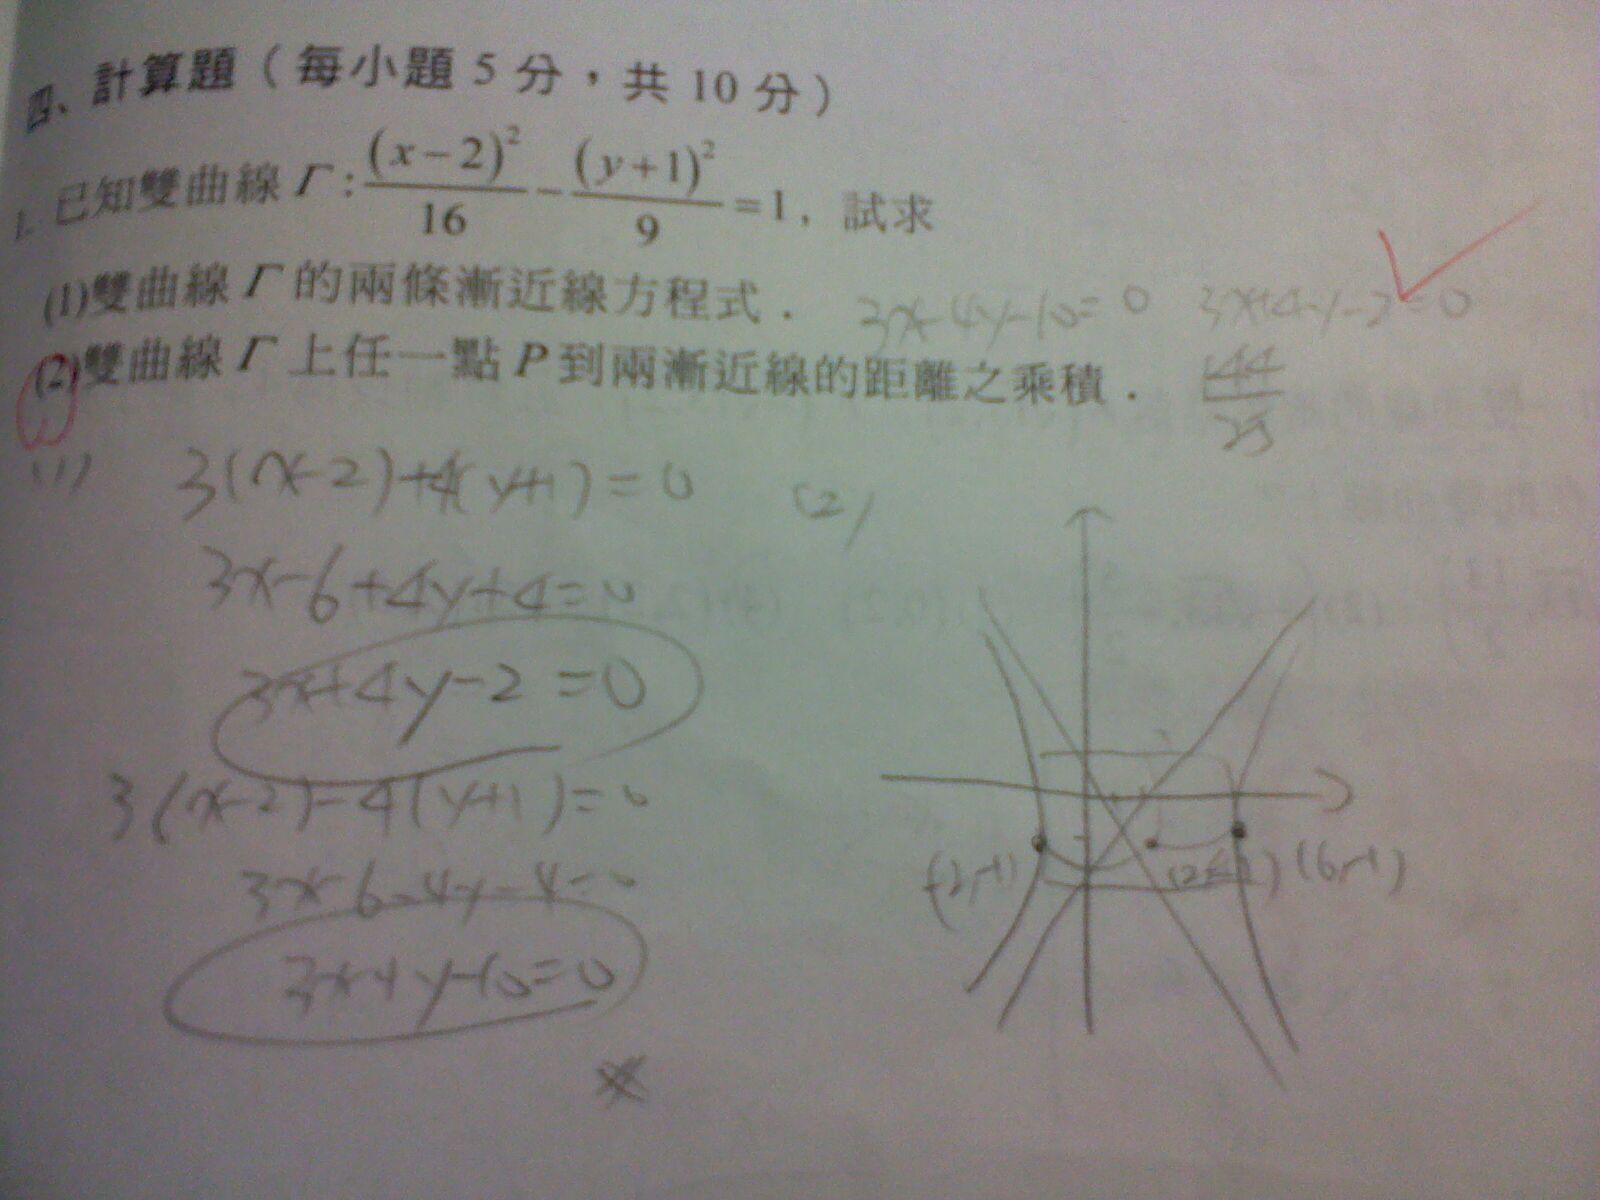 四、計算題（每小題 5 分，共 10 分）
1. 已知雙曲線 Γ : (x-2)²/16 - (y+1)²/9 = 1，試求
(1)雙曲線 Γ 的兩條漸近線方程式． 3x-4y-10=0 3x+4y-2=0
(2)雙曲線 Γ 上任一點 P 到兩漸近線的距離之乘積． 144/25
(1) 3(x-2)+4(y+1)=0
3x-6+4y+4=0
3x+4y-2=0
3(x-2)-4(y+1)=0
3x-6-4y-4=0
3x-4y-10=0
(2)
(-2,-1) (6,-1)